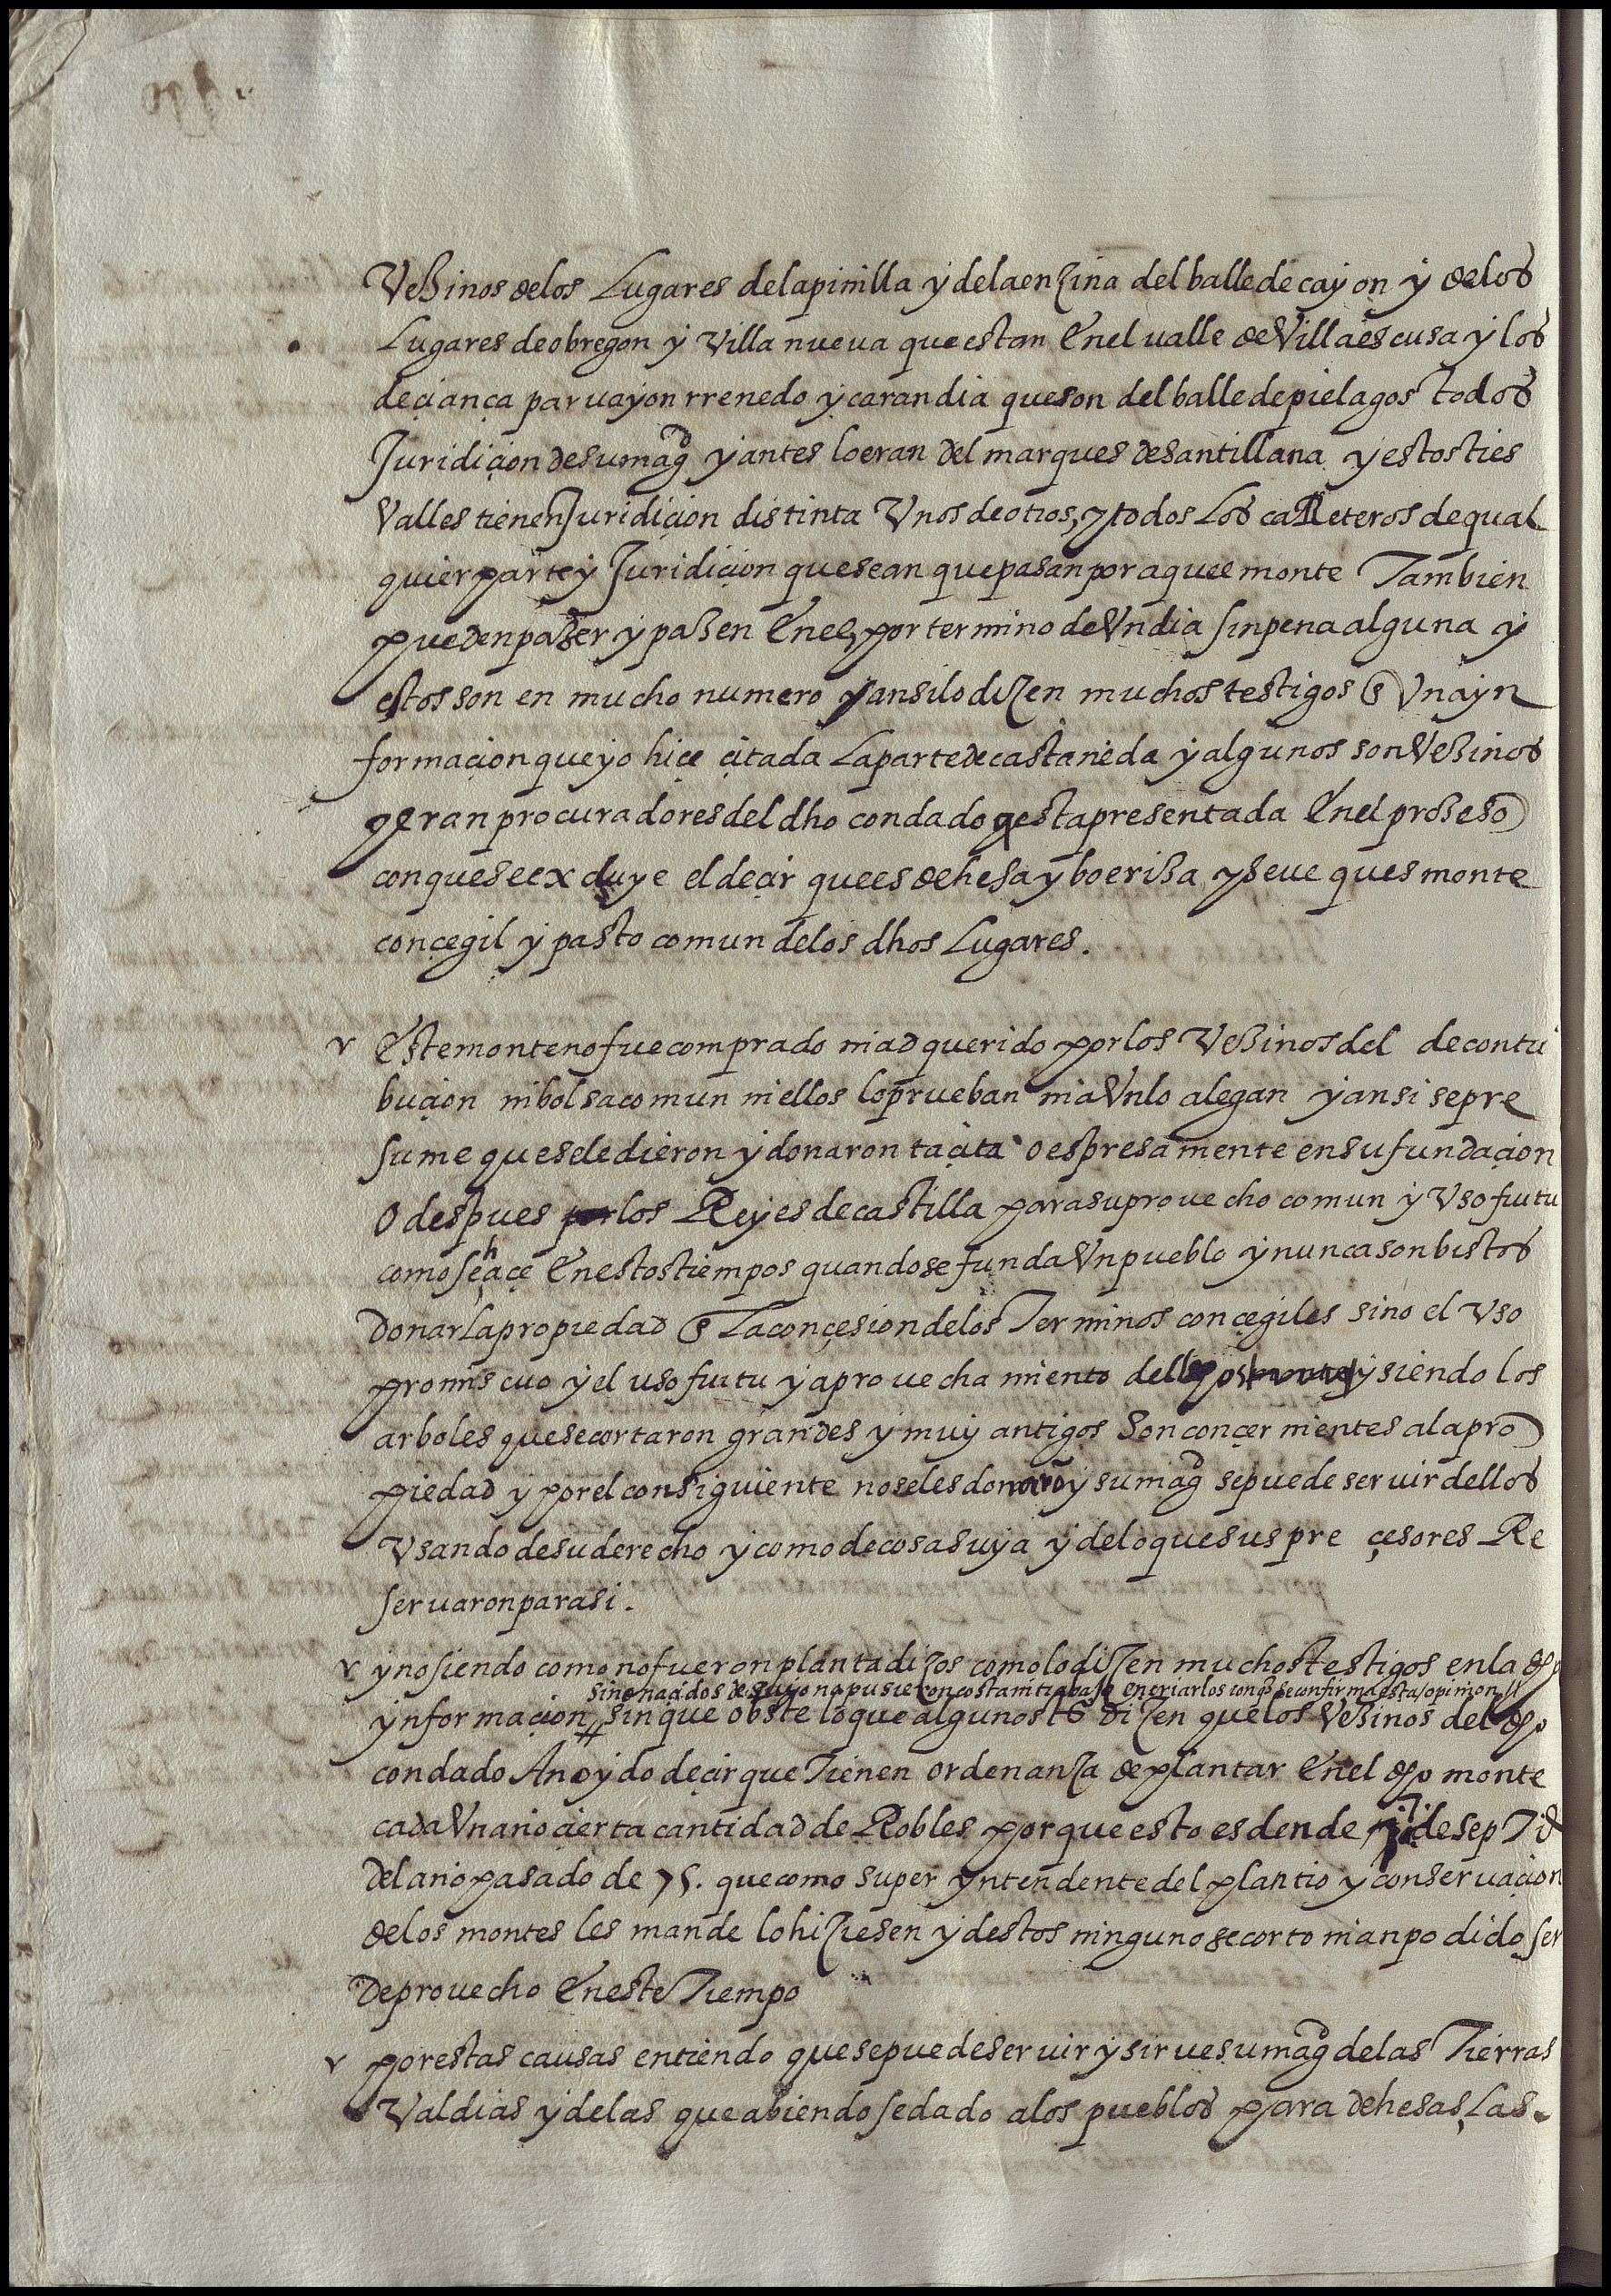 Vezinos de los Lugares de la pinilla y de la enzina del balle de cayon y de los
Lugares de obregon y Villa nueua que estan en el ualle de Villaescusa y los
de çiança paruayon rrenedo y carandia que son del balle de pielagos todos
Juridiçion de su magd y antes lo eran del marques de santillana y estos tres
Valles tienen Juridiçion distinta Vnos de otros, y todos Los caRreteros de qual
quier parte y Juridiçion que sean que pasan por aquel monte Tambien
pueden pazer y pazen en el por termino de Vn dia sin pena alguna y
estos son en mucho numero y ansi lo dizen muchos testigos en Vna yn
formaçion que yo hiçe çitada La parte de castañeda y algunos son Vezinos
q eran procuradores del dho condado q esta presentada en el prozeso
con que se excluye el deçir que es dehesa y boeriza y se ue ques monte
conçegil y pasto comun de los dhos Lugares.
Este monte no fue comprado ni adquerido por los Vezinos del de contri
buçion ni bolsa comun ni ellos lo prueban ni aVn lo alegan y ansi se pre
sume que se le dieron y donaron taçita o espresamente en su fundaçion
O despues los Reyes de castilla para su prouecho comun y Vso frutu
como se haçe en estos tiempos quando se funda Vn pueblo y nunca son bistos
Donar La propiedad en La conçesion de los Terminos conçegiles sino el Vso
promiscuo y el uso frutu y aprouechamiento dellos y siendo los
arboles que se cortaron grandes y muy antigos Son conçernientes a la pro
piedad y por el consiguiente no se les donaro y su magd se puede seruir dellos
Vsando de su derecho y como de cosa suya y de lo que sus pre çesores Re
seruaron para si.
y no siendo como no fueron plantadizos como lo dizen muchos Testigos en la dha
sino naçidos de suyo no pusieron costa ni trabajo en criarlos con q se confirma esta opinion //
ynformaçion // sin que obste lo que algunos ts dizen que los Vezinos del dho
condado An oydo deçir que Tienen ordenanza de plantar en el dho monte
cada Vn año çierta cantidad de Robles porque esto es dende de sep
Del año pasado de 75. que como super yntendente del plantio y conseruaçion
de los montes les mande lo hiziesen y destos ninguno se corto ni an podido ser
De prouecho en este Tiempo
por estas causas entiendo que se puede seruir y sirue su magd de las Tierras
Valdias y de las que abiendose dado a los pueblos para dehesas Las